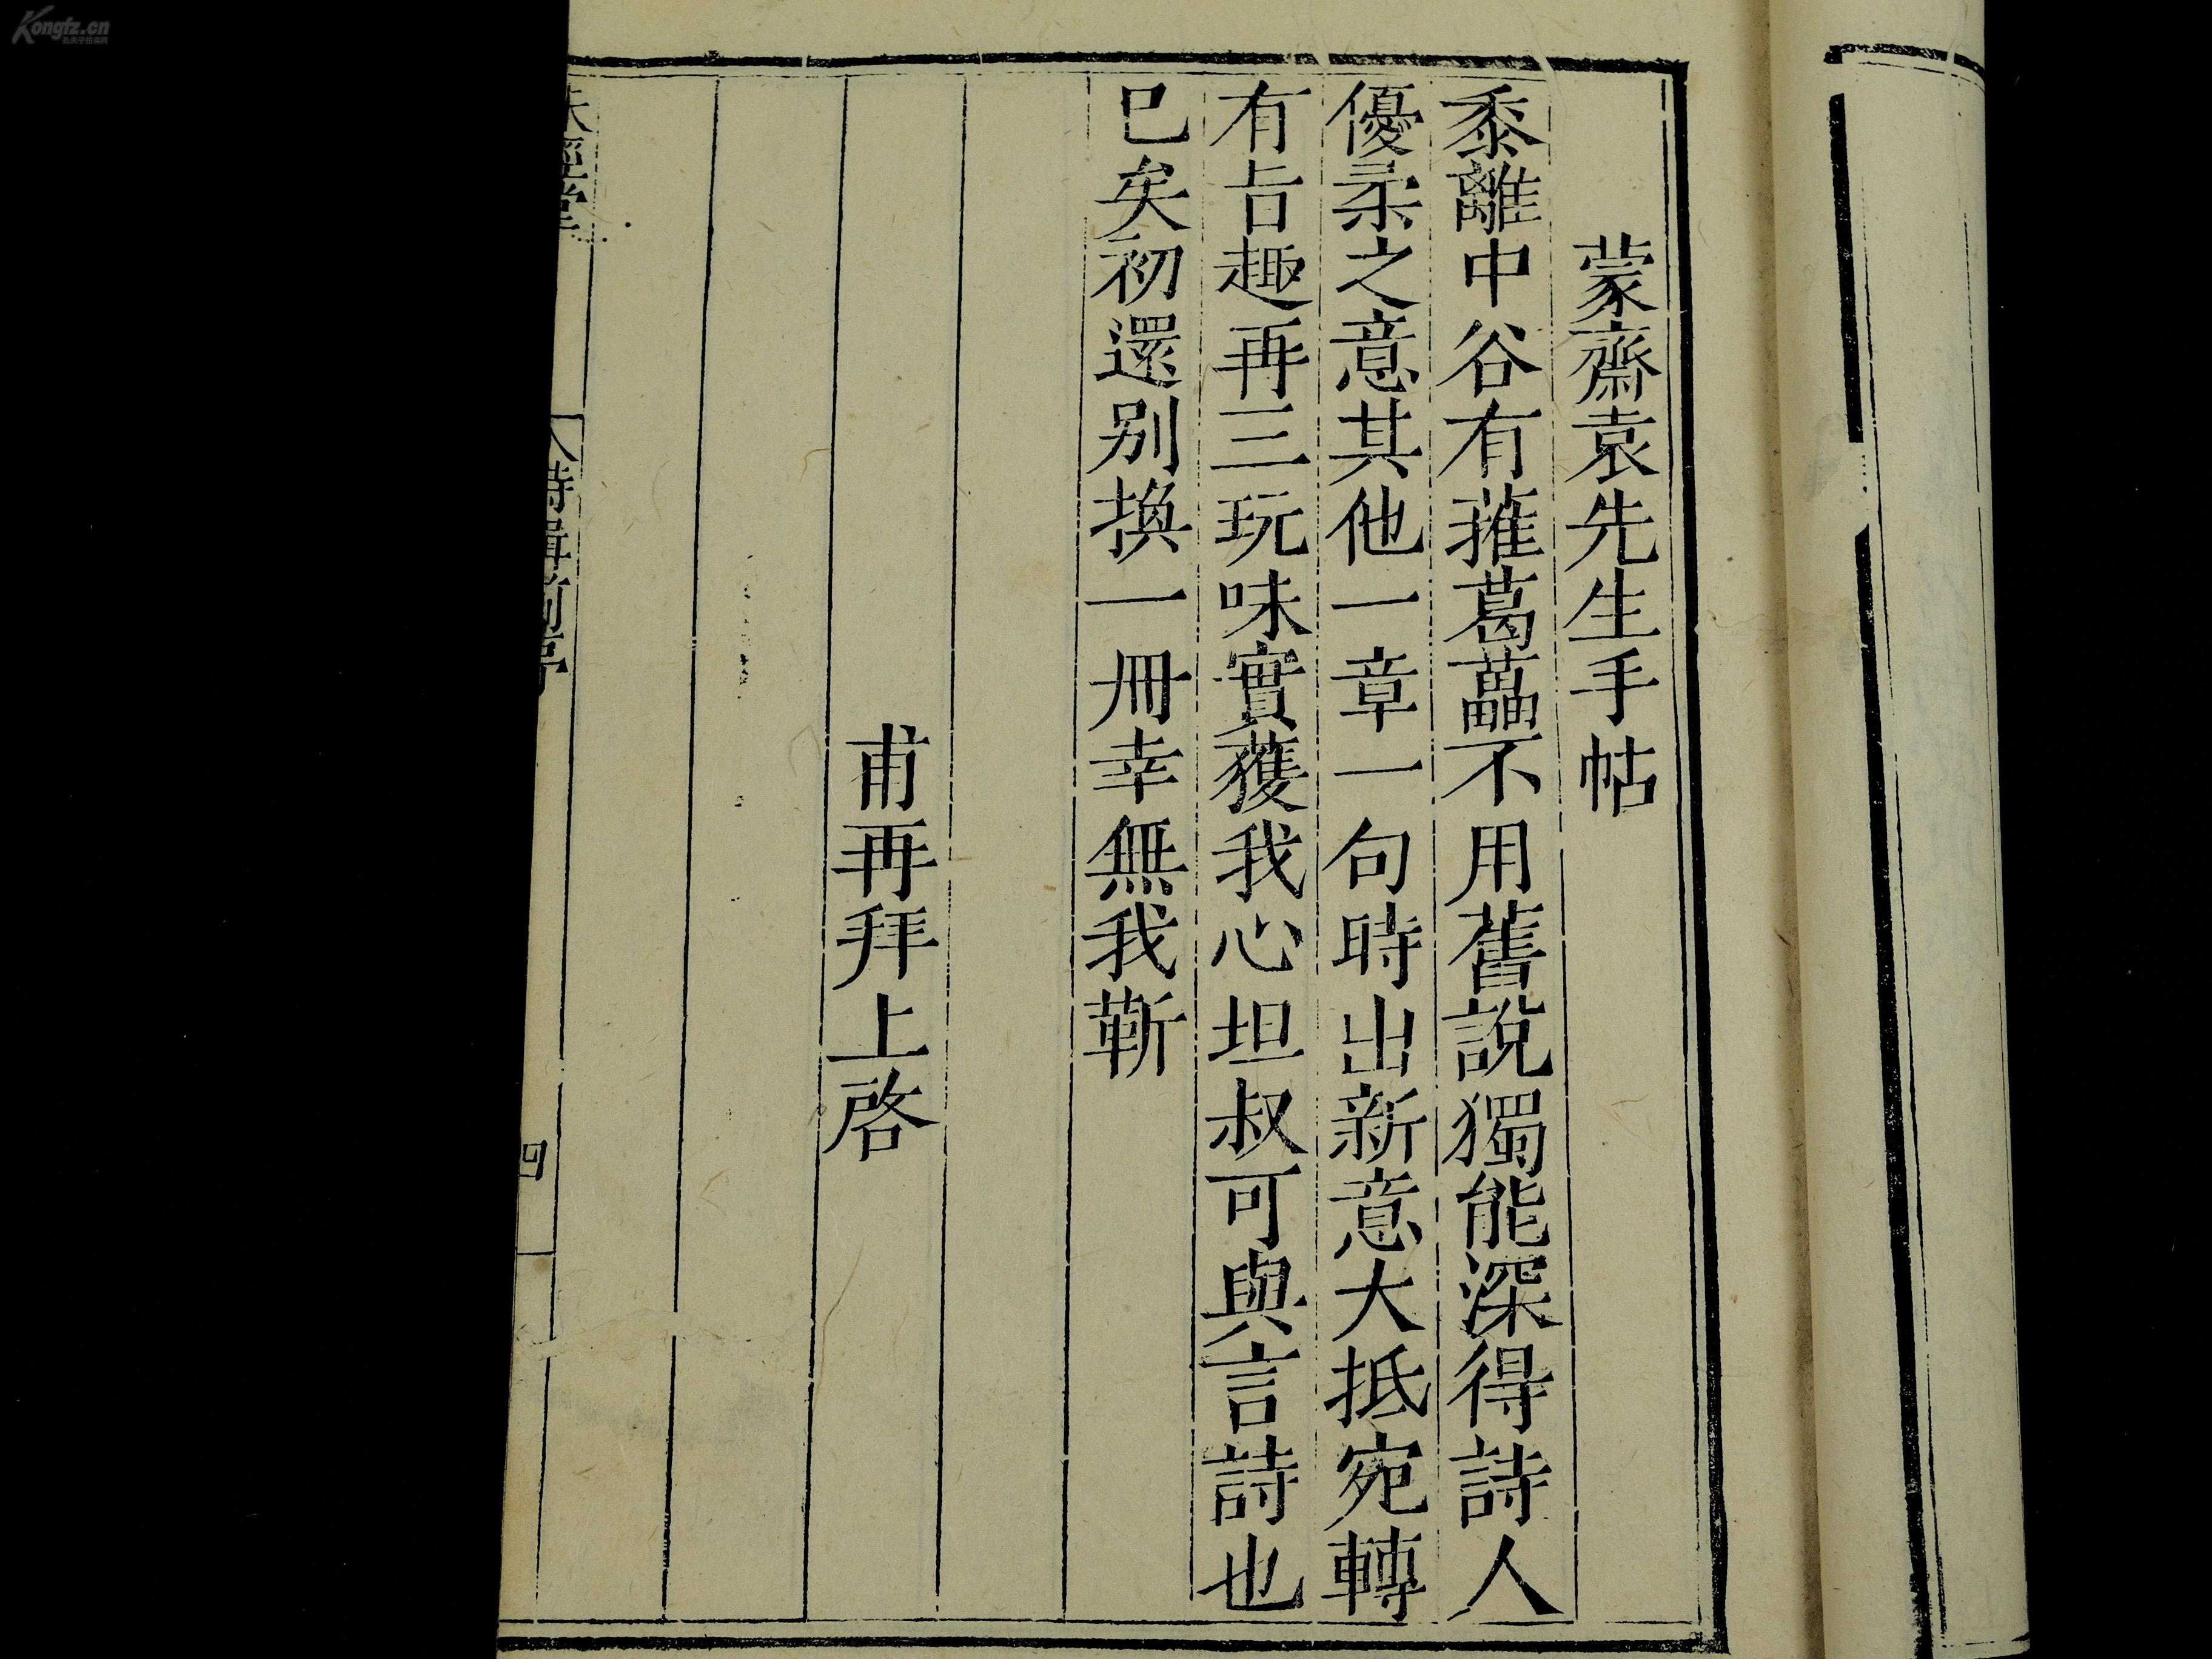 蒙齋袁先生手帖
黍離中谷有蓷葛藟不用舊說獨能深得詩人
優柔之意其他一章一句時出新意大抵宛轉
有旨趣再三玩味實獲我心坦叔可與言詩也
已矣初還别換一冊幸無我蘄
甫再拜上啓
詩緝前序
四
Kongfz.cn